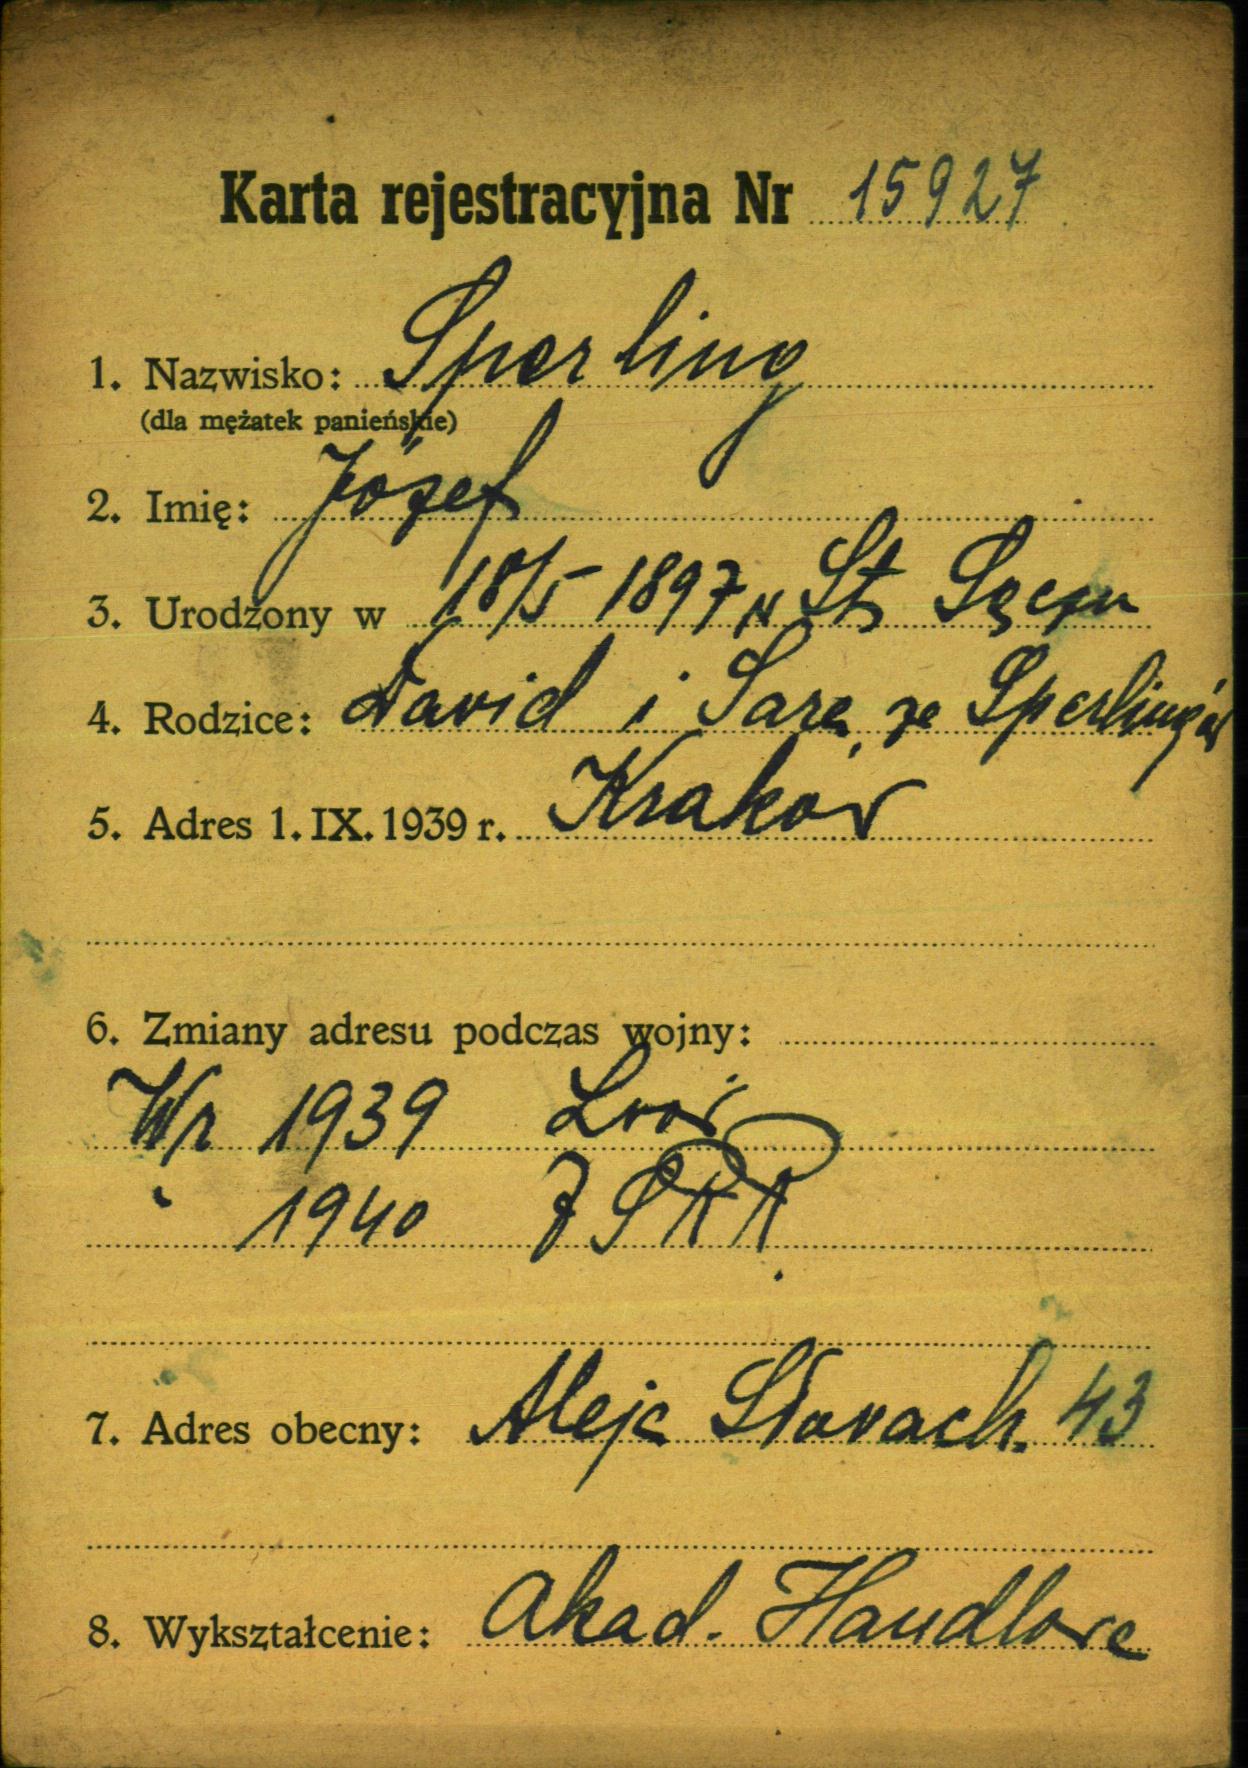 Karta rejestracyjna Nr 15927
1. Nazwisko: Sperling
(dla mężatek panieńskie)
2. Imię: Józef
3. Urodzony w 18/5 1897 w St Sączu
4. Rodzice: Dawid i Sara ze Sperlingów
5. Adres 1. IX. 1939 r. Kraków
6. Zmiany adresu podczas wojny:
Wr 1939 Lwów
" 1940 ZSRR
7. Adres obecny: Aleja Słowach. 43
8. Wykształcenie: Akad. Handlowa